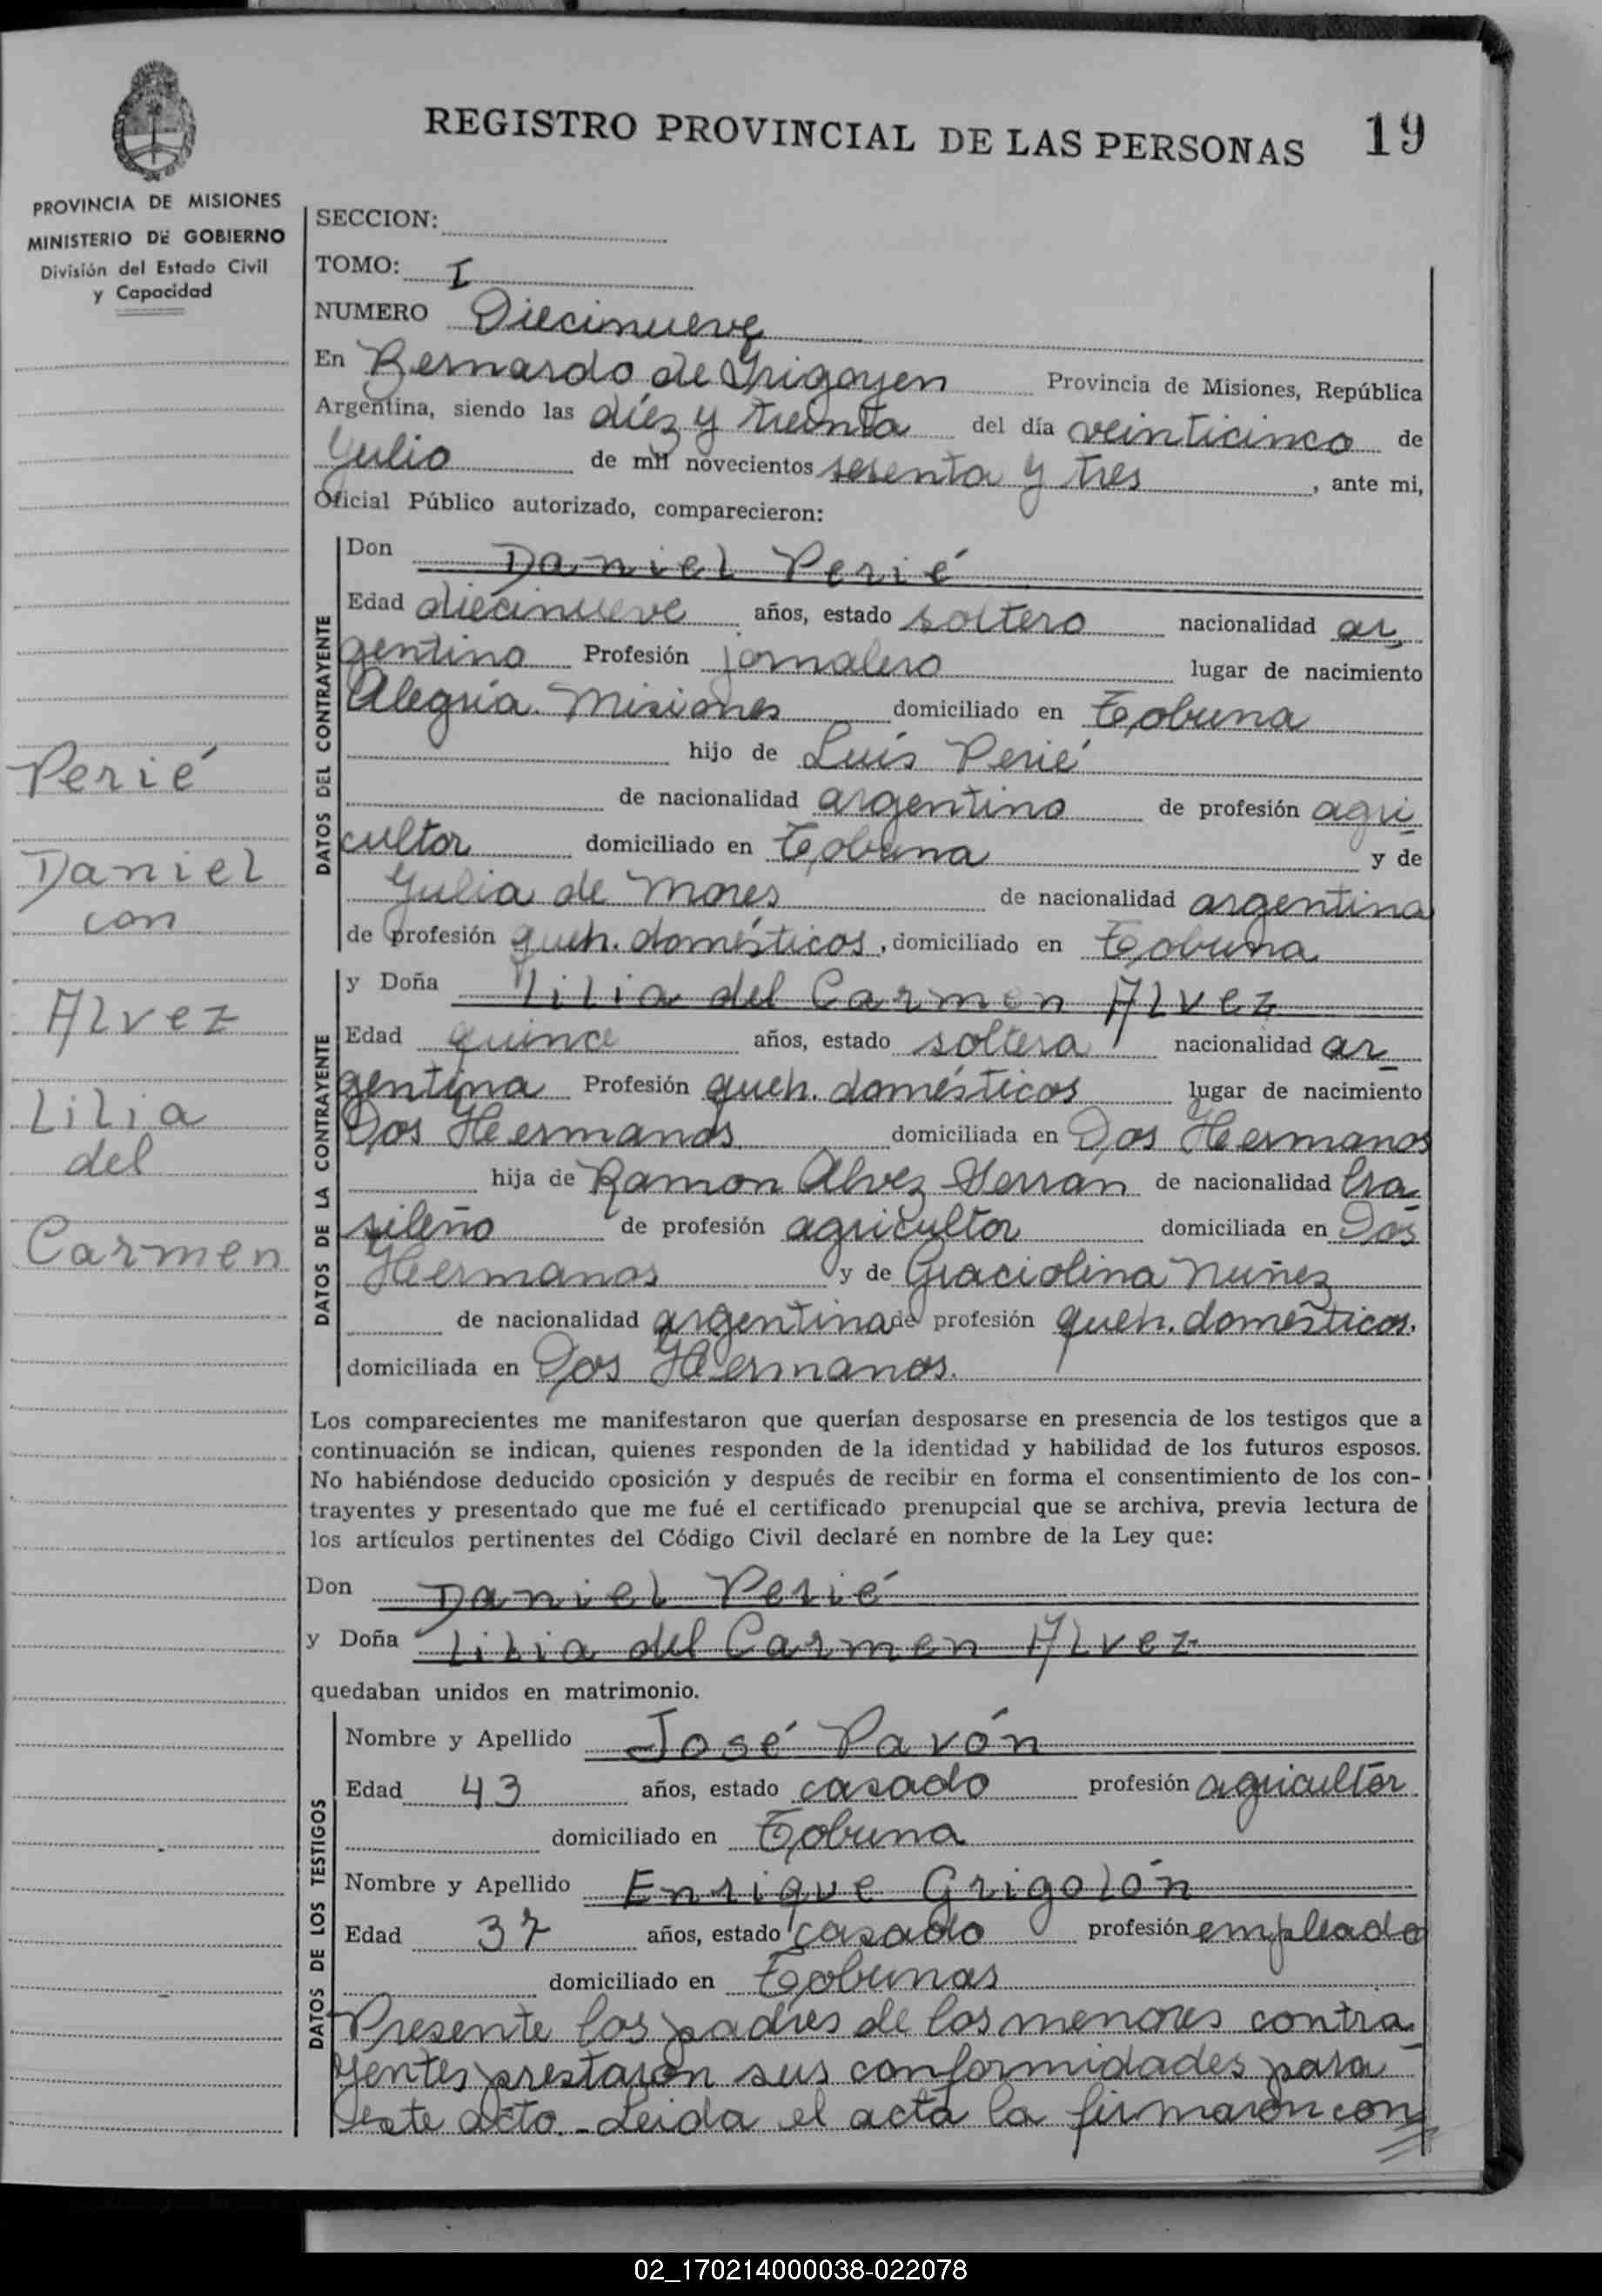 REGISTRO PROVINCIAL DE LAS PERSONAS 19
PROVINCIA DE MISIONES
MINISTERIO DE GOBIERNO
División del Estado Civil
y Capacidad
Perié
Daniel
con
Alvez
Lilia
del
Carmen
SECCION:
TOMO: I
NUMERO Diecinueve
En Bernardo de Irigoyen Provincia de Misiones, República
Argentina, siendo las diez y treinta del día veinticinco de
Julio de mil novecientos sesenta y tres, ante mi,
Oficial Público autorizado, comparecieron:
DATOS DEL CONTRAYENTE
Don Daniel Perié
Edad diecinueve años, estado soltero nacionalidad ar
gentino Profesión jornalero lugar de nacimiento
Alegría Misiones domiciliado en Tobuna
hijo de Luís Perié
de nacionalidad argentino de profesión agri
cultor domiciliado en Tobuna y de
Julia de Mores de nacionalidad argentina
de profesión queh. domésticos, domiciliado en Tobuna
DATOS DE LA CONTRAYENTE
y Doña Lilia del Carmen Alvez
Edad quince años, estado soltera nacionalidad ar
gentina Profesión queh. domésticos lugar de nacimiento
Dos Hermanas domiciliada en Dos Hermanas
hija de Ramon Alvez Serrán de nacionalidad bra
sileño de profesión agricultor domiciliada en Dos
Hermanas y de Graciolina Nuñez
de nacionalidad argentina de profesión queh. domésticos.
domiciliada en Dos Hermanas.
Los comparecientes me manifestaron que querían desposarse en presencia de los testigos que a
continuación se indican, quienes responden de la identidad y habilidad de los futuros esposos.
No habiéndose deducido oposición y después de recibir en forma el consentimiento de los con-
trayentes y presentado que me fué el certificado prenupcial que se archiva, previa lectura de
los artículos pertinentes del Código Civil declaré en nombre de la Ley que:
Don Daniel Perié
y Doña Lilia del Carmen Alvez
quedaban unidos en matrimonio.
DATOS DE LOS TESTIGOS
Nombre y Apellido José Pavón
Edad 43 años, estado casado profesión agricultor
domiciliado en Tobuna
Nombre y Apellido Enrique Grigolón
Edad 37 años, estado casado profesión empleado
domiciliado en Tobunas
Presente los padres de los menores contra
yentes prestaron sus conformidades para
este acto.- Leida el acta la firmaron con
02_170214000038-022078